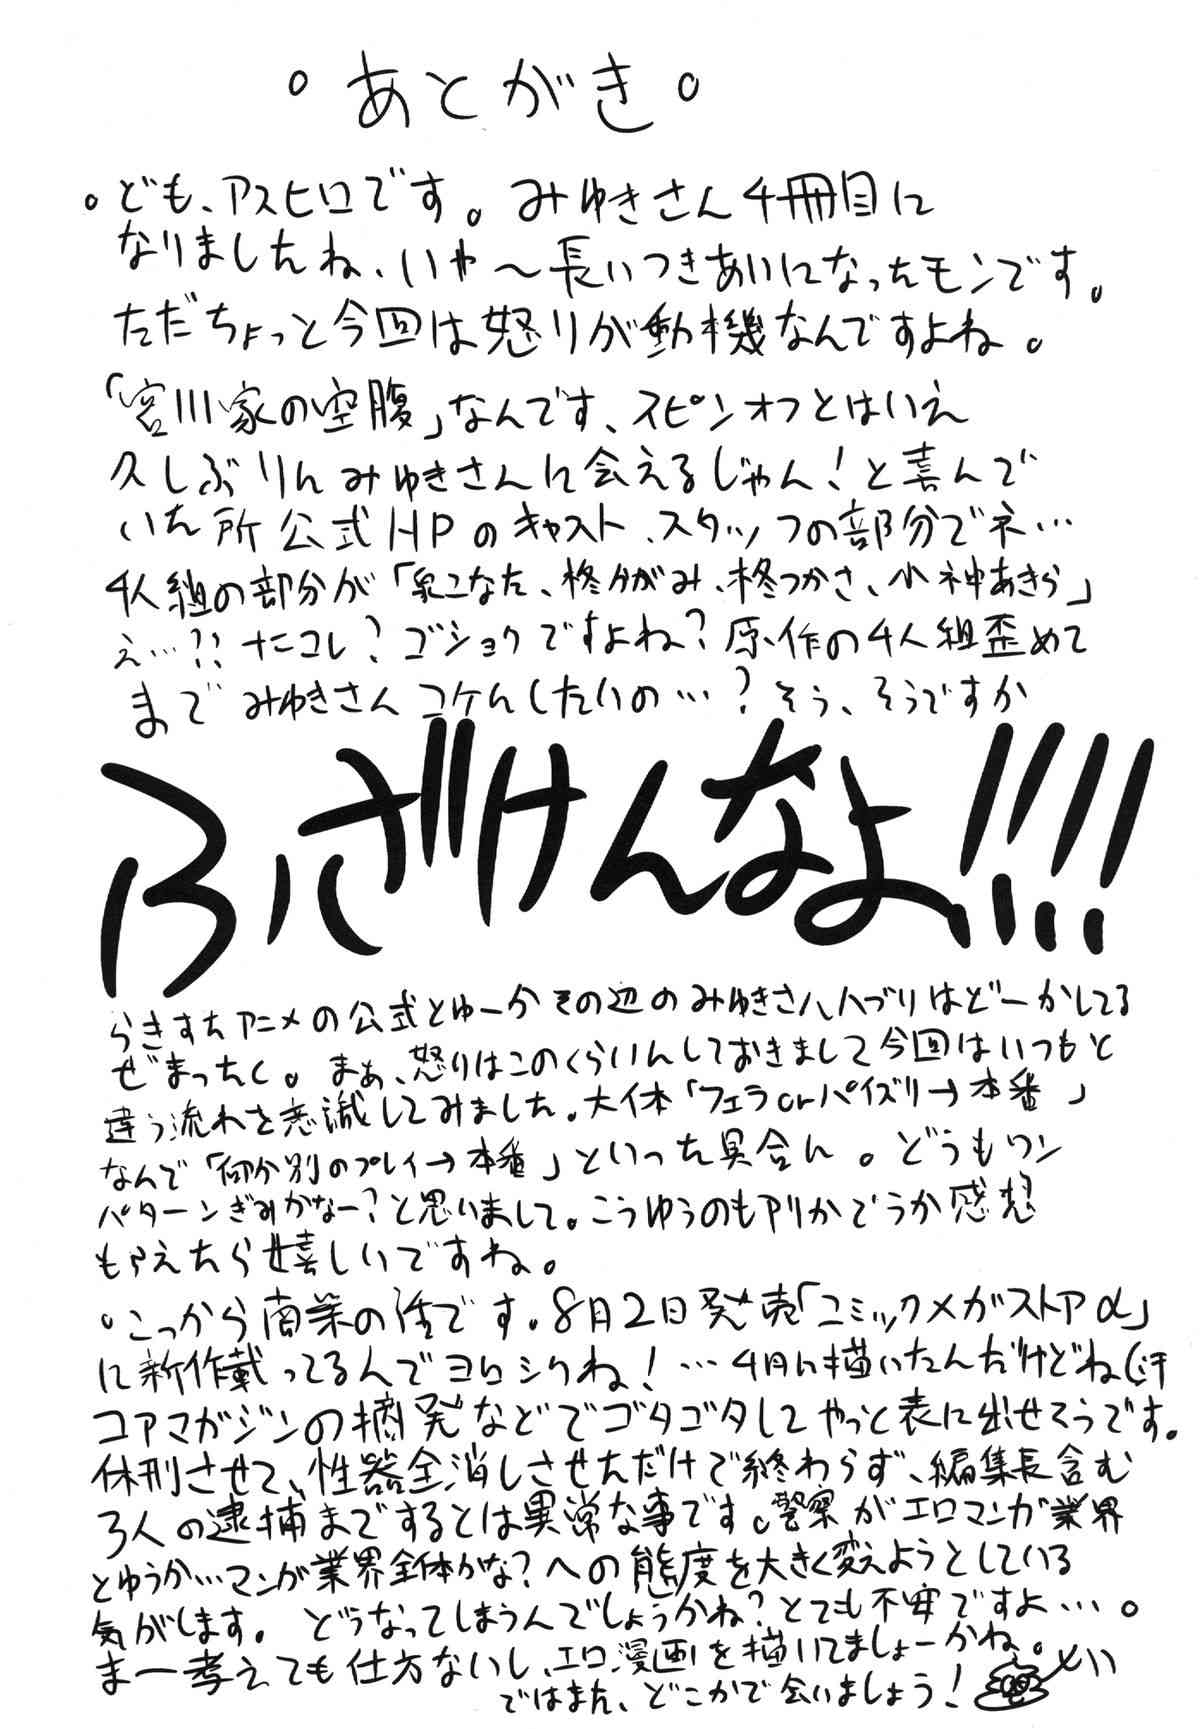 。あとがき。
。ども、アスヒロです。みゆきさん4冊目に
なりましたね、いや〜長いつきあいになったモンです。
ただちょっと今回は怒りが動機なんですよね。
「宮川家の空腹」なんです、スピンオフとはいえ
久しぶりにみゆきさんに会えるじゃん!と喜んで
いた所公式HPのキャスト、スタッフの部分でネ…
4人組の部分が「泉こなた、柊かがみ、柊つかさ、小神あきら」
え…??ナニコレ?ゴショクですよね?原作の4人組歪めて
までみゆきさんコケにしたいの…?そう、そうですか
ふざけんなよ!!!!
らきすたアニメの公式とゆーかその辺のみゆきさんハブりはどーかしてる
ぜまったく。まぁ、怒りはこのくらいにしておきまして今回はいつもと
違う流れを意識してみました。大体「フェラorパイズリ→本番」
なんで「何か別のプレイ→本番」といった具合に。どうもワン
パターンぎみかなー?と思いまして。こうゆうのもアリかどうか感想
もらえたら嬉しいですね。
・こっから商業の話です。8月2日発売「コミックメガストアα」
に新作載ってるんでヨロシクね!…4月に描いたんだけどね(汗
コアマガジンの摘発などでゴタゴタしてやっと表に出せそうです。
休刊させて、性器全消しさせただけで終わらず、編集長含む
3人の逮捕まですとは異常な事です。警察がエロマンガ業界
とゆうか…マンガ業界全体かな?への態度を大きく変えようとしている
気がします。どうなってしまうんでしょうかね?とても不安ですよ…。
まー考えても仕方ないし、エロ漫画を描いてましょーかね。
ではまた、どこかで会いましょう!